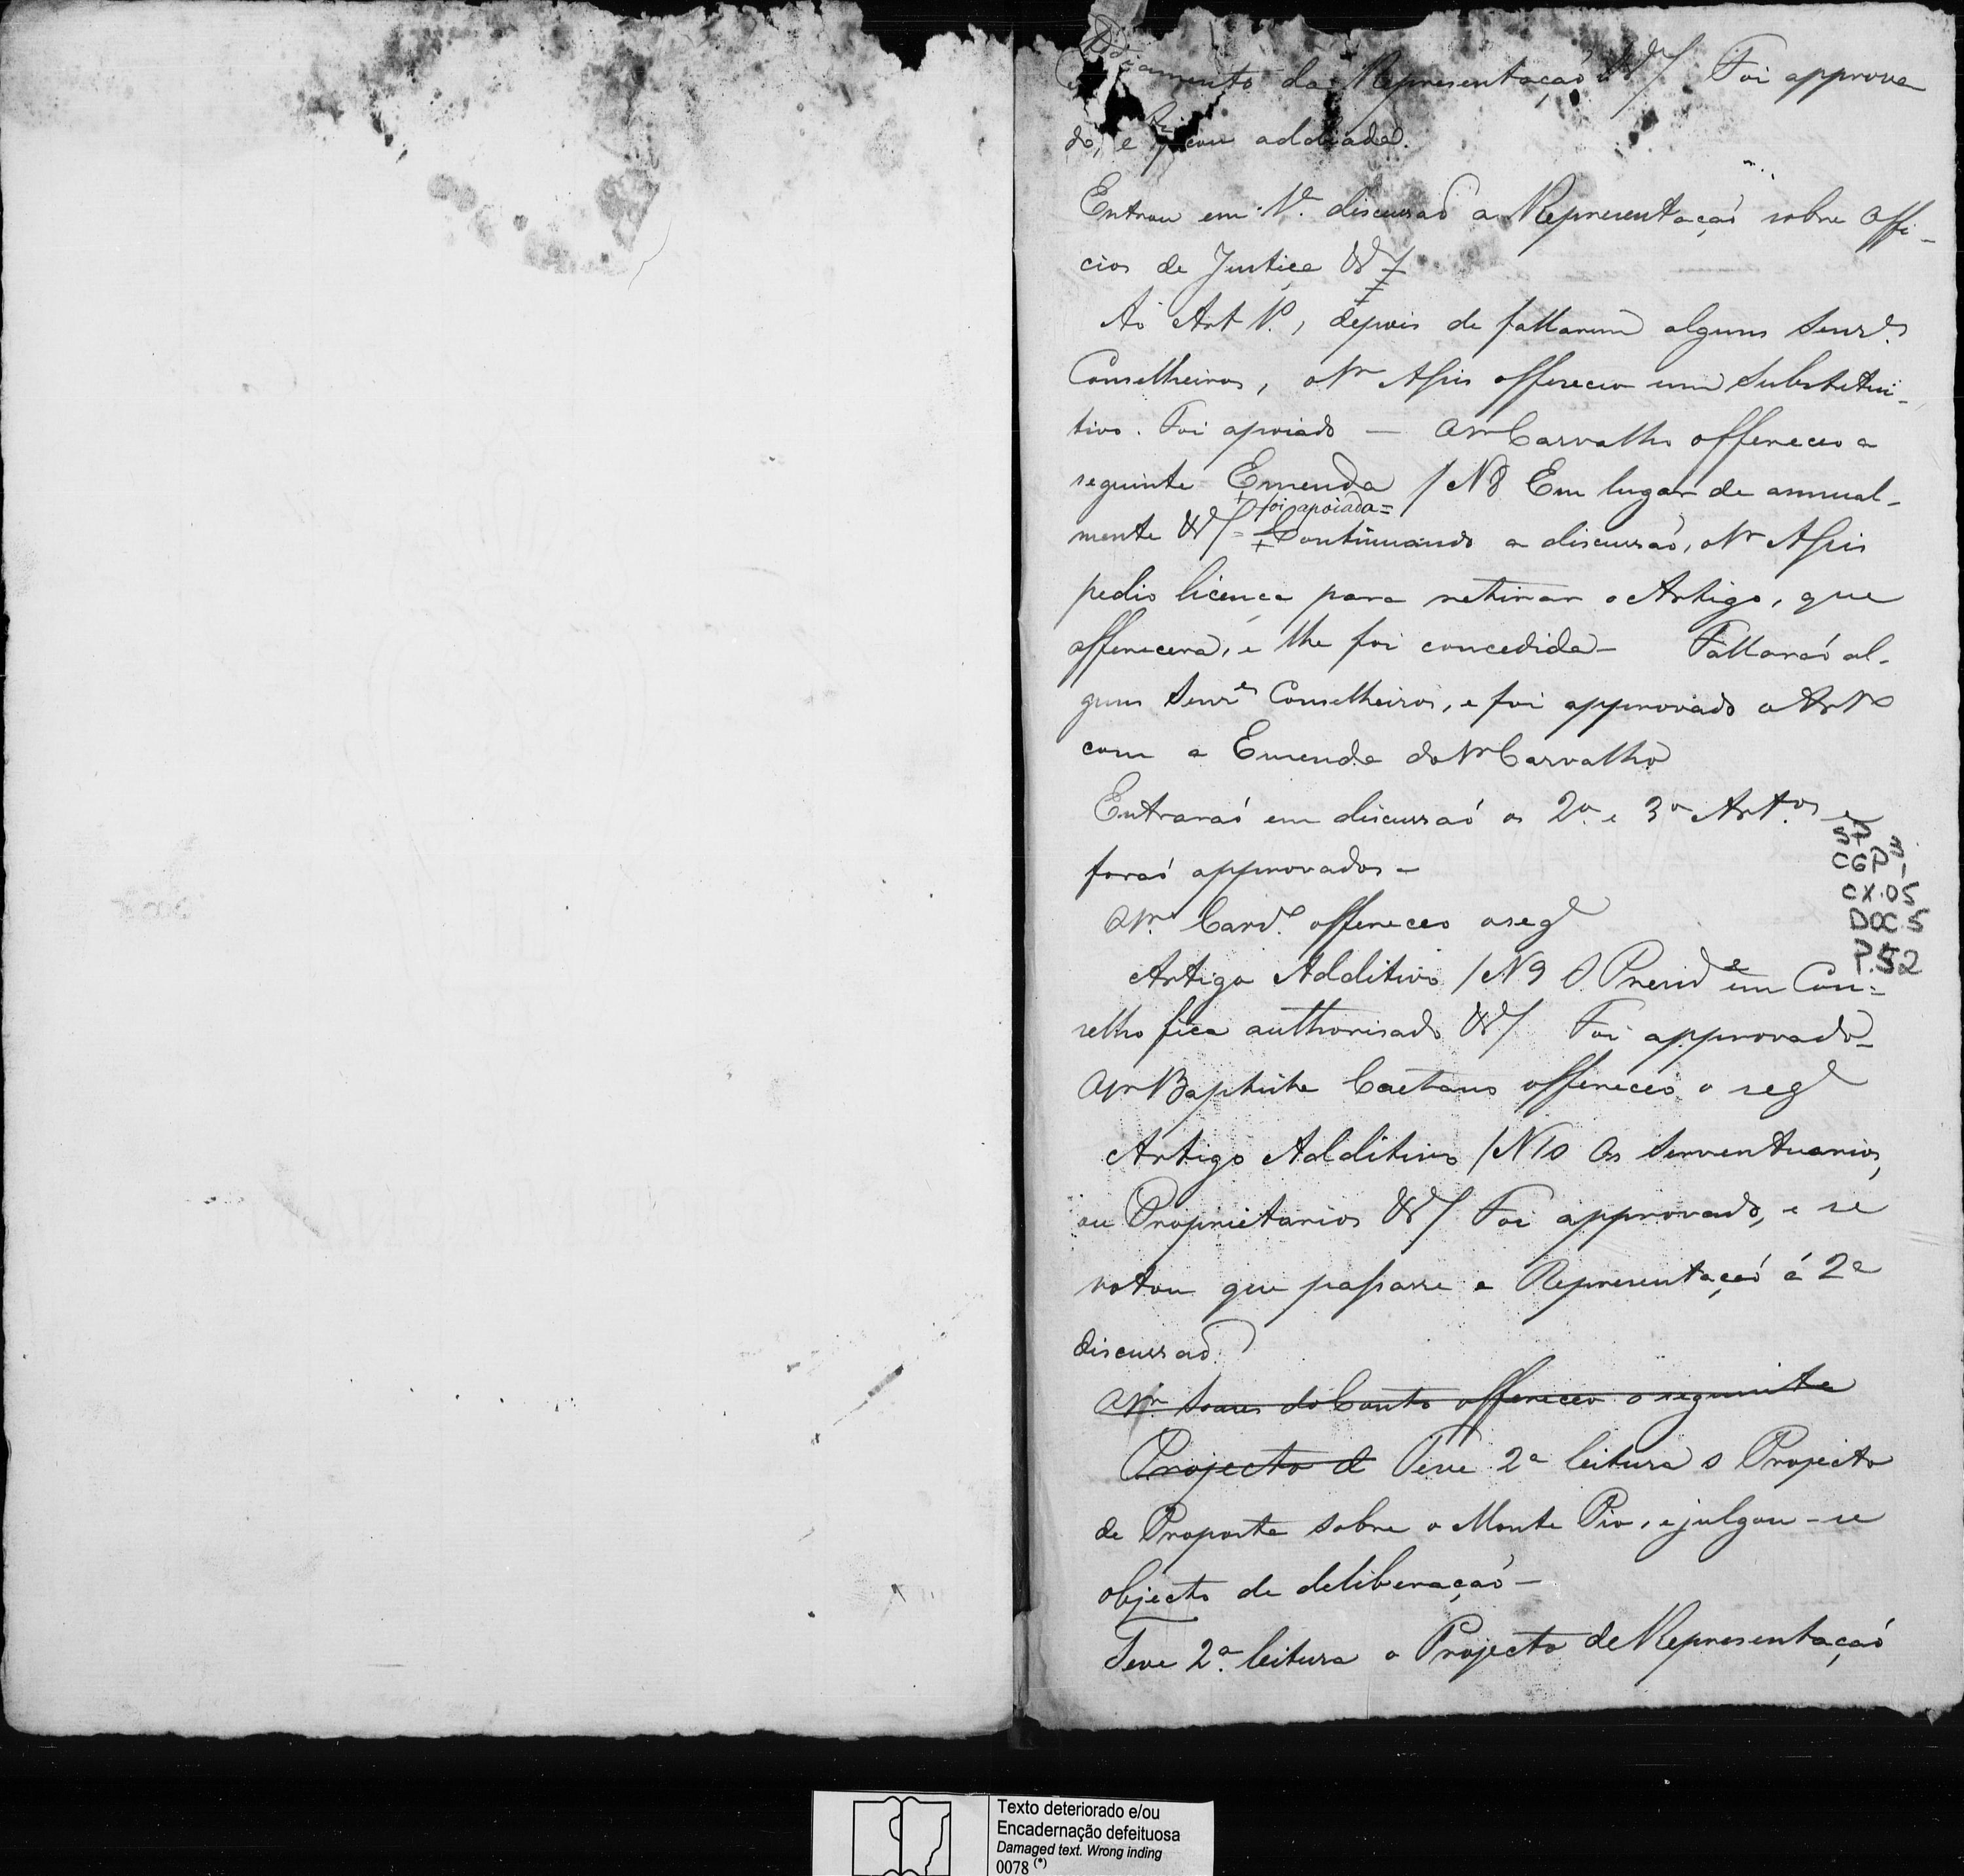 Addiamento da Representaçaõ &ª/ Foi approva
do, e ficou addiada.
Entrou em 1ª discussaõ a Representaçaõ sobre Offi-
cios de Justiça &ª/
Ao Art 1º, depois de fallarem alguns Senrˢ
Conselheiros, o Sr Assis offereceo um Substitui-
tivo. Foi apoiado — O Sr Carvalho offereceo a
seguinte Emenda / N 8 Em lugar de annual-
mente &ª/ = Foi apoiada = Continuando a discussaõ, o Sr Assis
pedio licença para retirar o Artigo, que
offerecera, e lhe foi concedida - Fallaraõ al-
guns Senrˢ Conselheiros, e foi approvado o Art 1º
com a Emenda do Sr Carvalho
Entraraõ em discussaõ os 2º e 3º Art.ºˢ e
foraõ approvados -
SP
CGP 3,
CX.05
DOC.5
P.52
O Sr. Card.º offereceo o seg.
Artigo Additivo / N 9 O Presid.e em Con=
selho fica authorisado &ª/ Foi approvado -
O Sr Baptista Caetano offereceo o seg.
Artigo Additivo / N 10 Os Serventuarios,
ou Proprietarios &ª/ Foi approvado, e se
votou que passasse a Representaçaõ á 2ª
discussaõ.
O Sr. Soares do Couto offereceo o seguinte
Projecto d Teve 2ª leitura o Projecto
de Proposta sobre o Monte Pio, e julgou-se
objecto de deliberaçaõ -
Teve 2ª leitura o Projecto de Representaçaõ
Texto deteriorado e/ou
Encadernação defeituosa
Damaged text. Wrong inding
0078 (*)